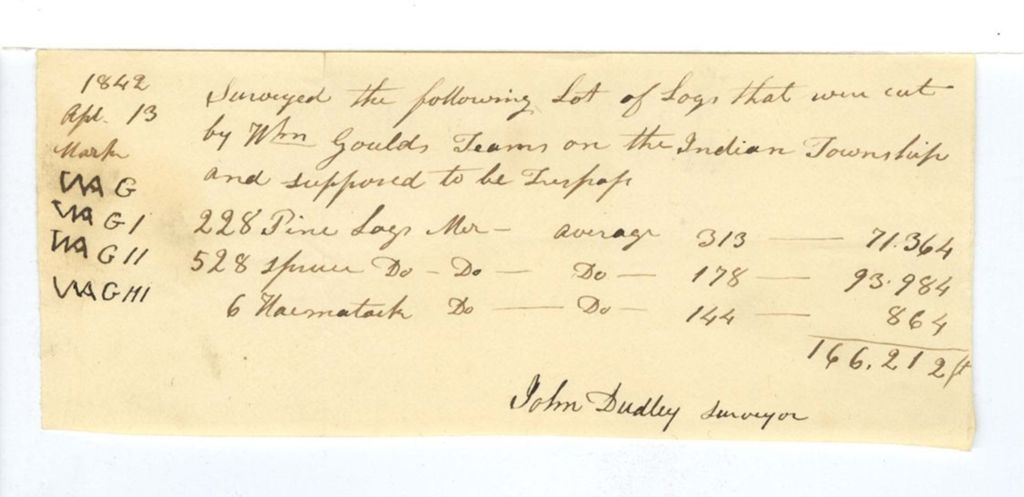 1842
Apl. 13
Mark
G
G I
G II
G III
Surveyed the following Lot of Logs that were cut
by Wm Goulds Teams on the Indian Township
and supposed to be Trespass
228 Pine Logs Mer - average 313 — 71.364
528 Spruce Do - Do — Do — 178 — 93.984
6 Hacmatack Do — Do — 144 — 864
166.212 ft
John Dudley Surveyor